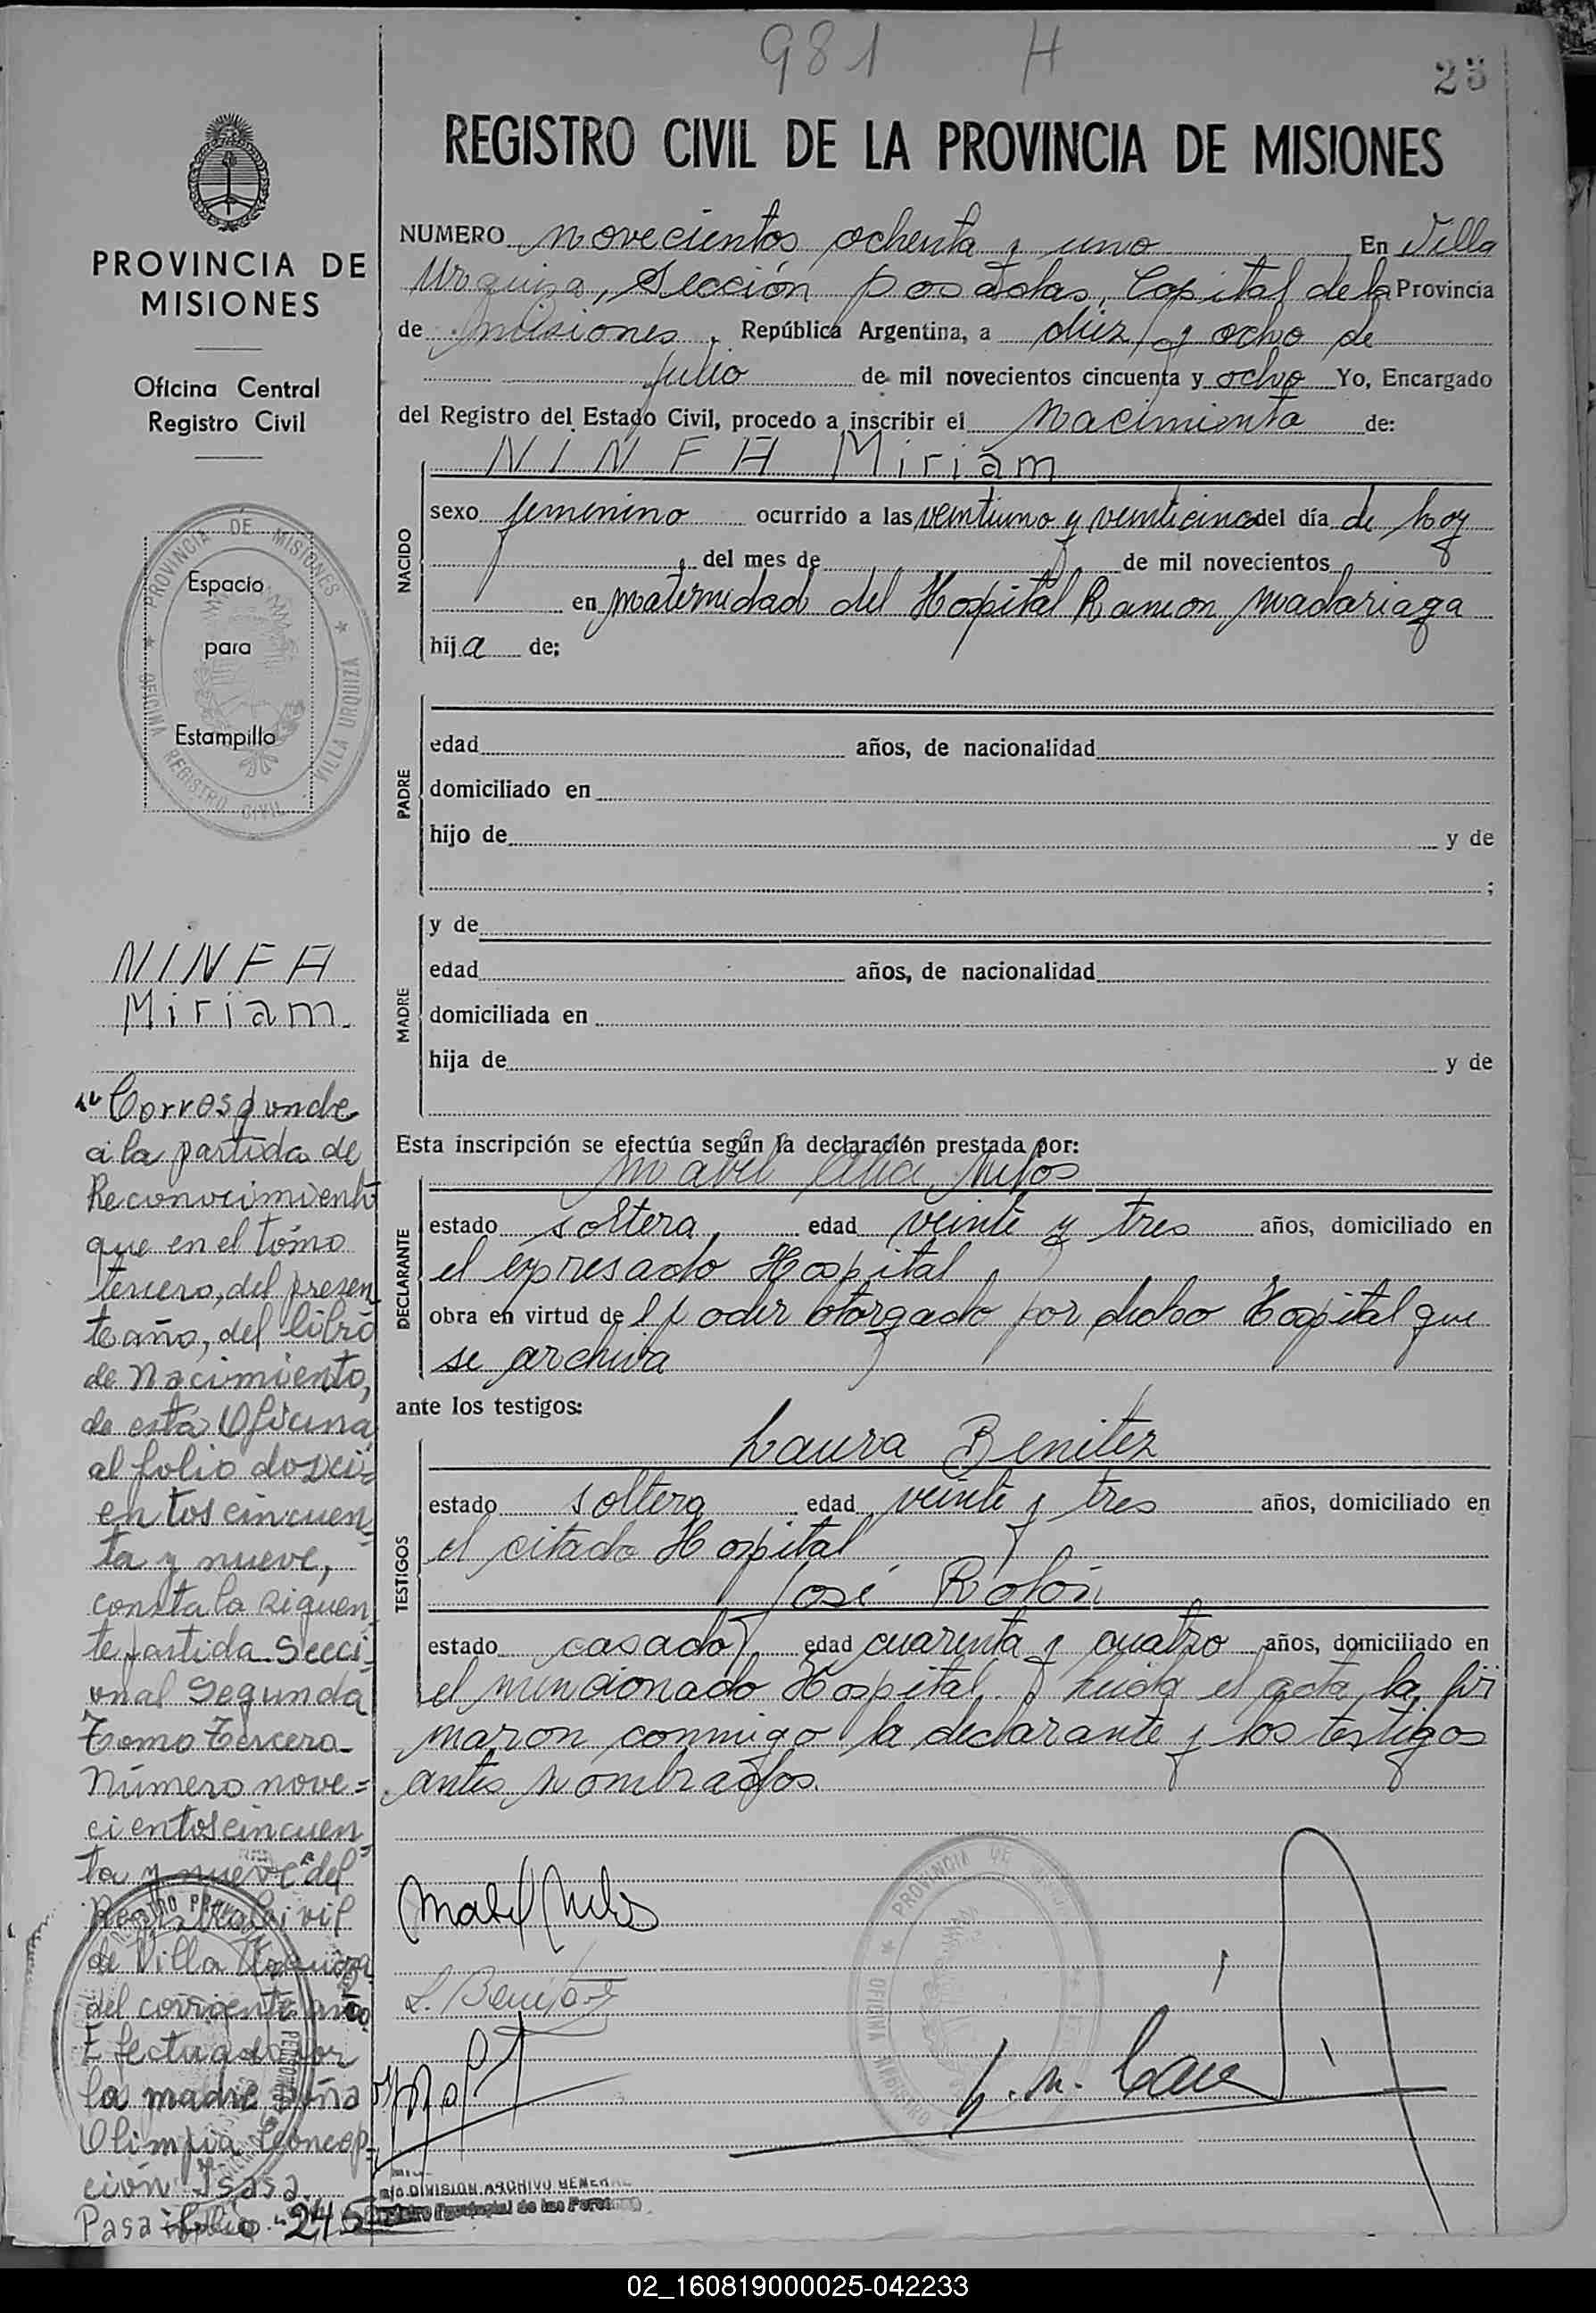 981 H
25
REGISTRO CIVIL DE LA PROVINCIA DE MISIONES
PROVINCIA DE
MISIONES
Oficina Central
Registro Civil
PROVINCIA DE MISIONES
OFICINA REGISTRO CIVIL VILLA URQUIZA
Espacio
para
Estampilla
NUMERO novecientos ochenta y uno En Villa
Urquiza, Sección posadas, Capital de la Provincia
de Misiones, República Argentina, a diez y ocho de
julio de mil novecientos cincuenta y ocho Yo, Encargado
del Registro del Estado Civil, procedo a inscribir el Nacimiento de:
NACIDO
NINFA Miriam
sexo femenino ocurrido a las veintiuno y veinticinco del día de hoy
, del mes de de mil novecientos
en maternidad del Hospital Ramon Madariaga
hija de:
PADRE
edad años, de nacionalidad
domiciliado en
hijo de y de
;
MADRE
y de
edad años, de nacionalidad
domiciliada en
hija de y de
Esta inscripción se efectúa según la declaración prestada por:
DECLARANTE
Mabel
estado soltera, edad veinte y tres años, domiciliado en
el expresado Hospital
obra en virtud del poder otorgado por dicho Hospital que
se archiva
ante los testigos:
TESTIGOS
Laura Benitez
estado soltera edad veinte y tres años, domiciliado en
el citado Hospital
José Rolón
estado casado edad cuarenta y cuatro años, domiciliado en
el mencionado Hospital. Leida el acta la fir
maron conmigo la declarante y los testigos
antes nombrados.
Mabel
L. Benitez
NINFA
Miriam.
"Corresponde
a la partida de
Reconocimiento
que en el tómo
tercero, del presen
te año, del libro
de Nacimiento,
de esta Oficina
al folio dosci=
entos cincuen
ta y nueve,
consta la siguen
te partida. Secci
onal Segunda
Tomo Tercero
Número nove=
cientos cincuen
ta y nueve" del
Registro Civil
de Villa Urquiza
del corriente año
Efectuado por
la madre doña
Olimpia Concep=
ción Isasa
Pasa folio "245
DIVISION ARCHIVO GENERAL
Provincial de las Personas
02_160819000025-042233